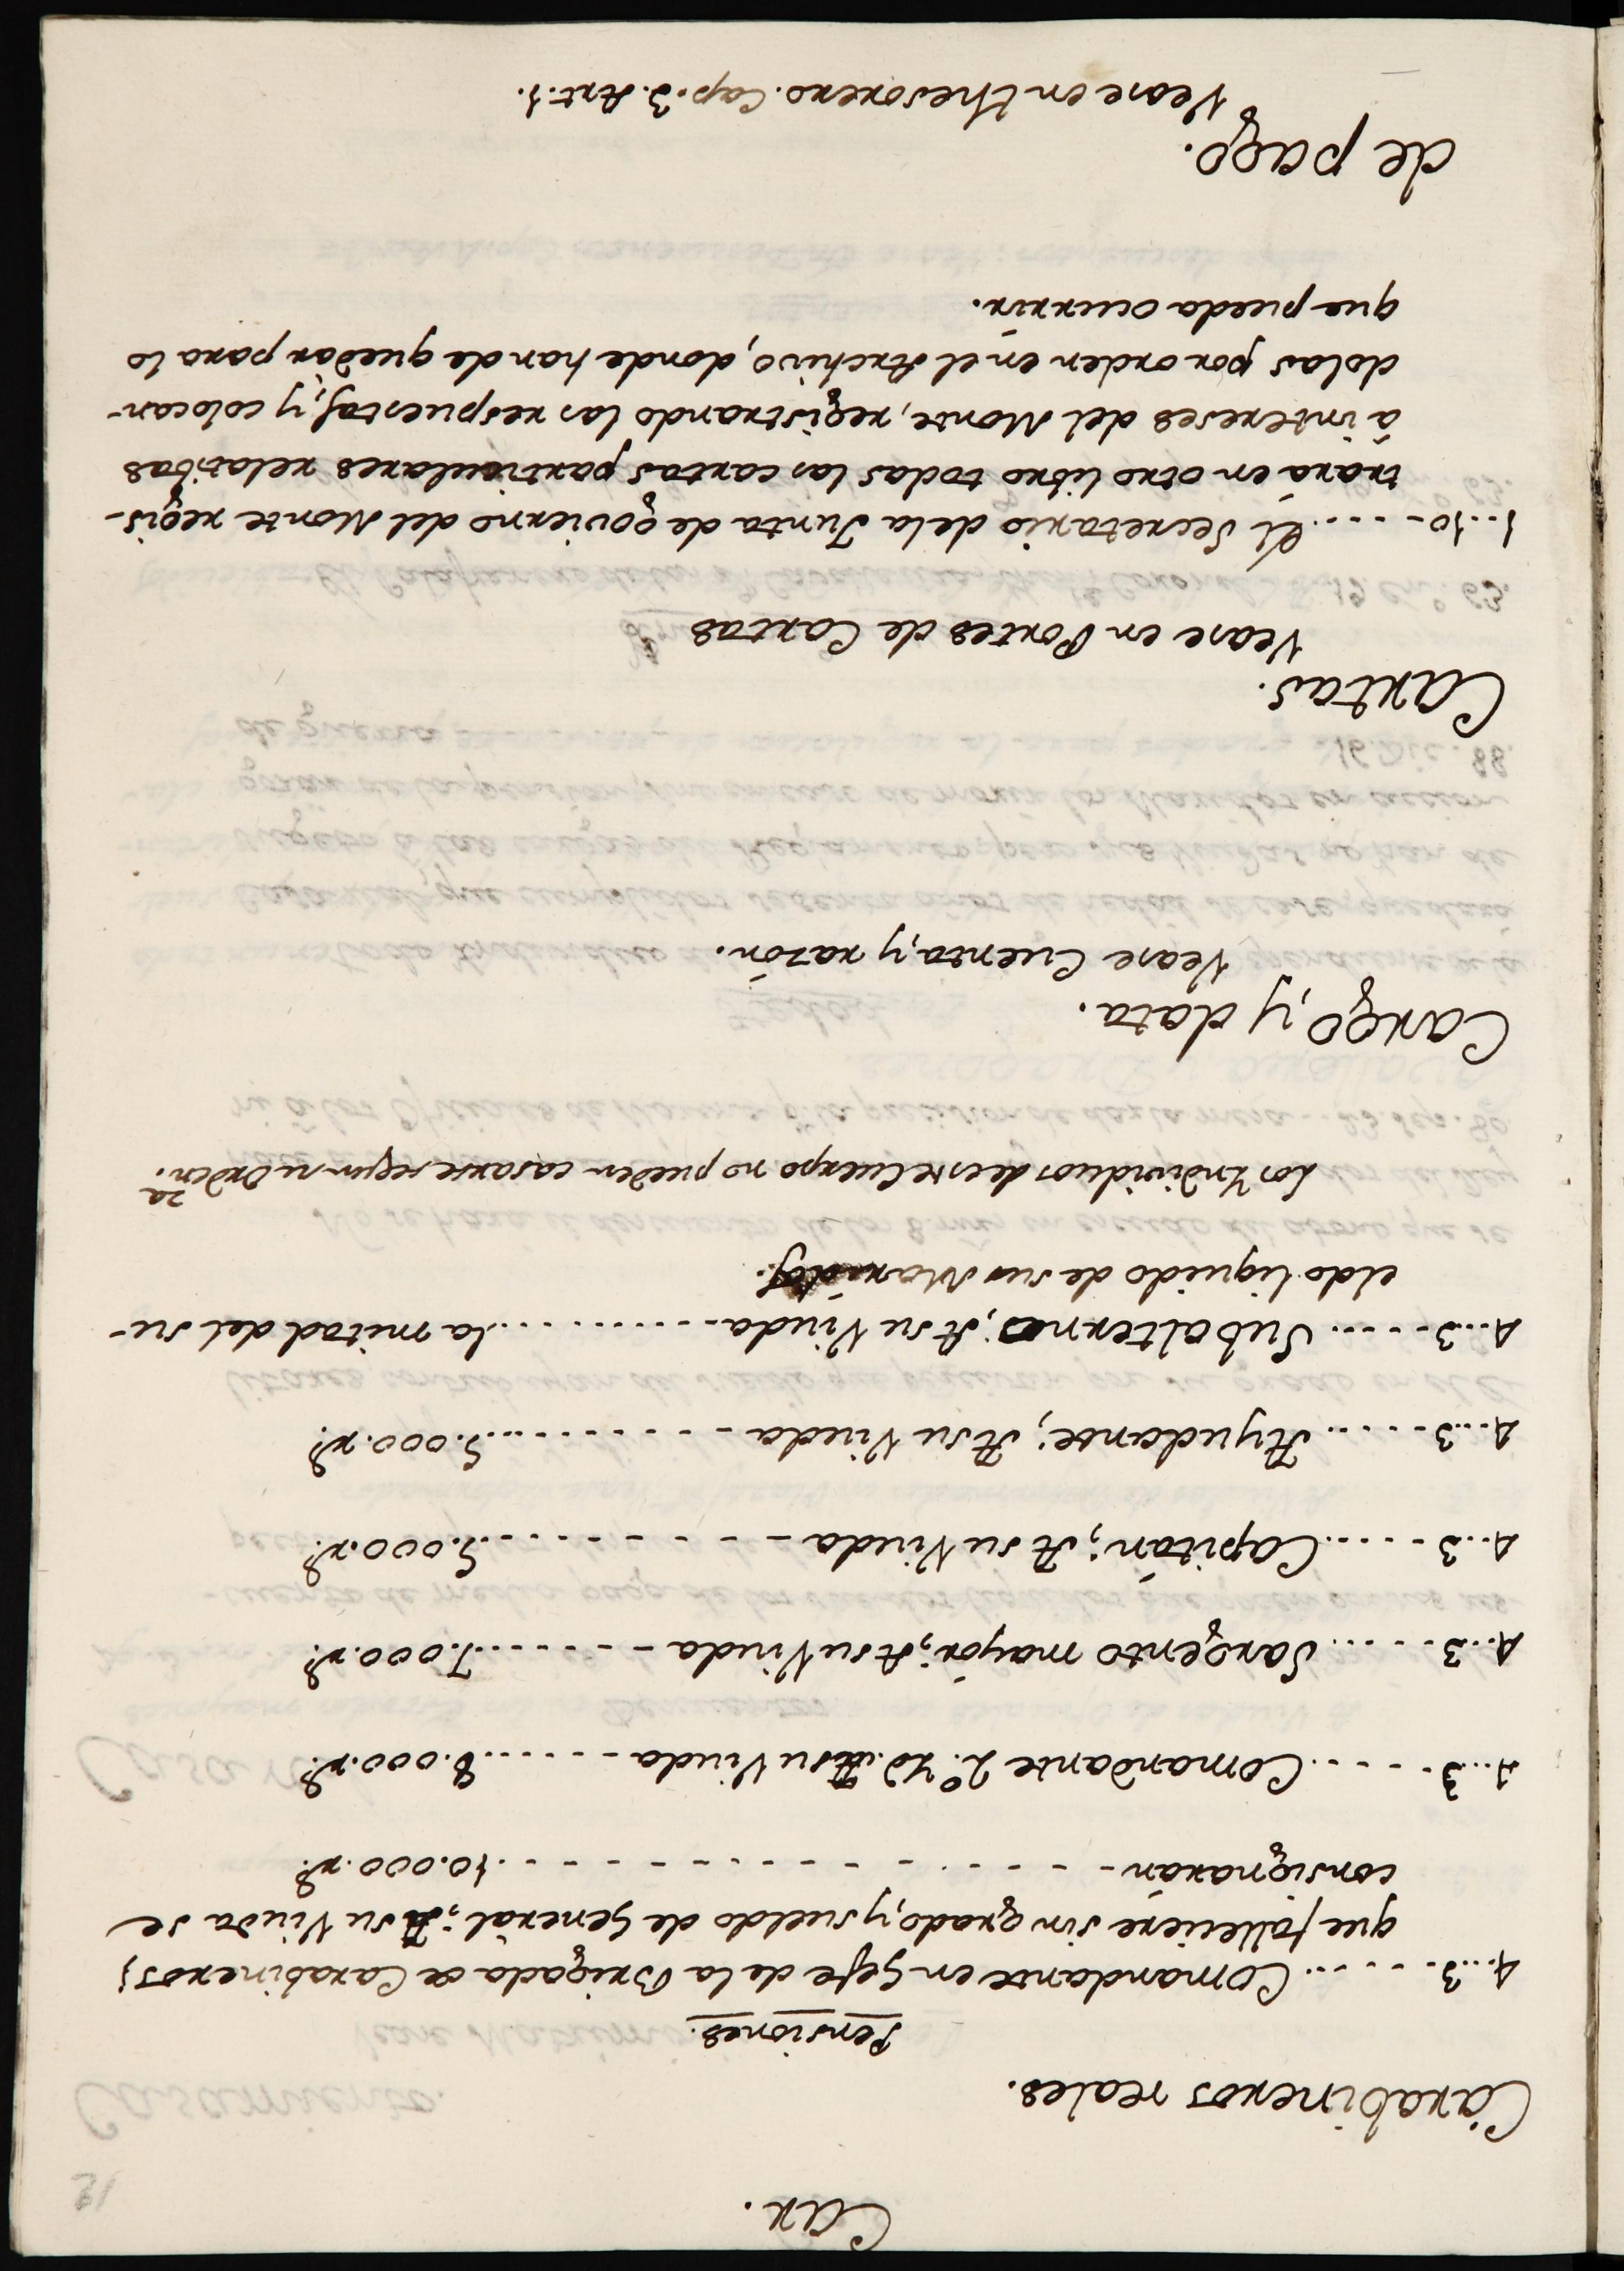 Car.
21
Carabineros reales.
Pensiones.
4...3.-.... Comandante en Gefe de la Brigada de Carabineros;
que falleciere sin grado, y sueldo de General; A su Viuda se
consignarán - - - - - - - - - - - - 10.000.rˢ
4...3.-.... Comandante 2º Yd. A su Viuda - - - ..... 8.000.rˢ
4...3.-.... Sargento mayór; A su Viuda - - - ..... 7.000.rˢ
4...3.-.... Capitán; A su Viuda - - - - - - ..... 5.000.rˢ
4...3.-.... Ayudante; A su Viuda - - - - - ..... 5.000.rˢ
4...3.-.... Subalternos; A su Viuda - ......... la mitad del su-
eldo liquido de sus Maridos.
Los Yndividuos de este Cuerpo no pueden casarse segun su Ordenza.
Cargo, y data.
Vease Cuenta, y razón.
Cartas.
Vease en Portes de Cartas
1...10-..... El Secretario de la Junta de govierno del Monte regis-
trará en otro libro todas las cartas particulares relatibas
á intereses del Monte, registrando las respuestas, y colocan-
dolas por orden en el Archivo, donde han de quedar para lo
que pueda ocurrir.
de pago.
Vease en thesorero. Cap. 3. Art. 1.